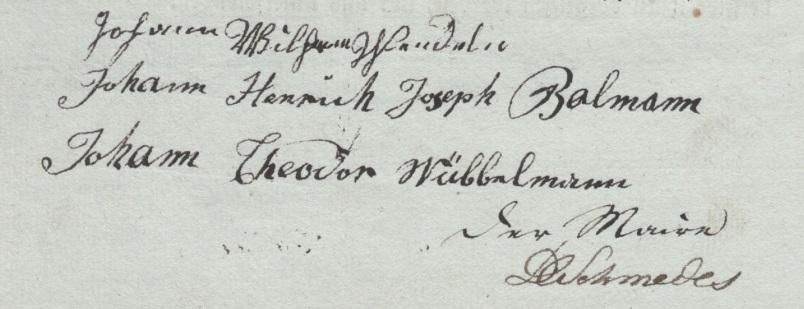 Johann Wilhelm Wendeln
Johann Henrich Joseph Balmann
Johann Theodor Wübbelmann
Der Maire
Schmedes